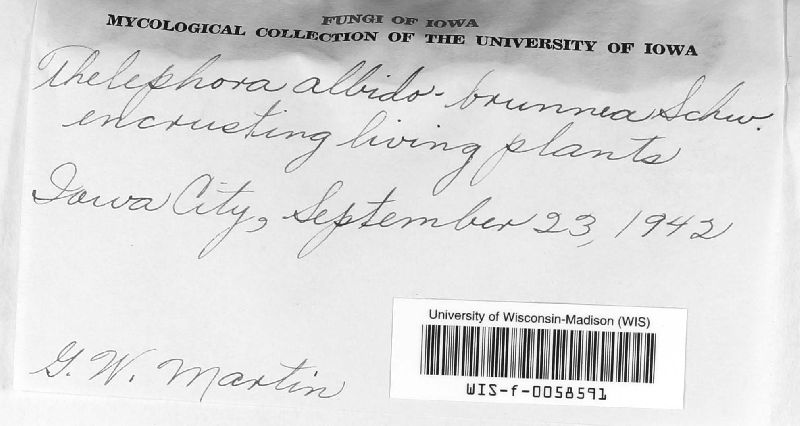 FUNGI OF IOWA
MYCOLOGICAL COLLECTION OF THE UNIVERSITY OF IOWA
Thelephora albido-brunnea Schw.
encrusting living plants
Iowa City, September 23, 1942
University of Wisconsin-Madison (WIS)
WIS-f-0058591
G. W. Martin